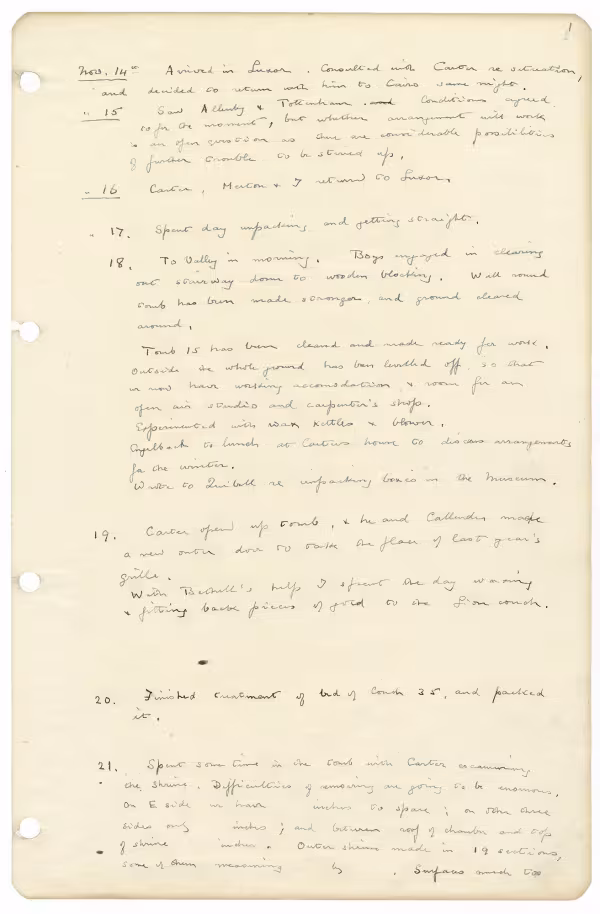 1
Nov. 14th Arrived in Luxor. Consulted with Carter re situation,
and decided to return with him to Cairo same night.
" 15 Saw Allenby & Tottenham. Conditions agreed
to for the moment, but whether arrangement will work
is an open question as there are considerable possibilities
of further trouble to be stirred up.
" 16 Carter, Merton & I return to Luxor.
" 17. Spent day unpacking and getting straight.
18. To Valley in morning. Boys engaged in clearing
out stairway down to wooden blocking. Wall round
tomb has been made stronger, and ground cleared
around.
Tomb 15 has been cleaned and made ready for work.
Outside the whole ground has been levelled off, so that
we now have working accomodation, & room for an
open air studio and carpenter's shop.
Experimented with wax kettles & blower.
Engelbach to lunch at Carter's house to discuss arrangements
for the winter.
Wrote to Quibell re unpacking boxes in the Museum.
19. Carter opened up tomb, & he and Callender made
a new outer door to take the place of last year's
grille.
With Bethell's help I spent the day waxing
& fitting back pieces of gold to the Lion couch.
20. Finished treatment of bed of Couch 35, and packed
it.
21. Spent some time in the tomb with Carter examining
the shrine. Difficulties of removing are going to be enormous.
On E side we have inches to spare; on other three
sides only inches; and between roof of chamber and top
of shrine inches. Outer shrine made in 19 sections,
some of them measuring by . Surfaces much too